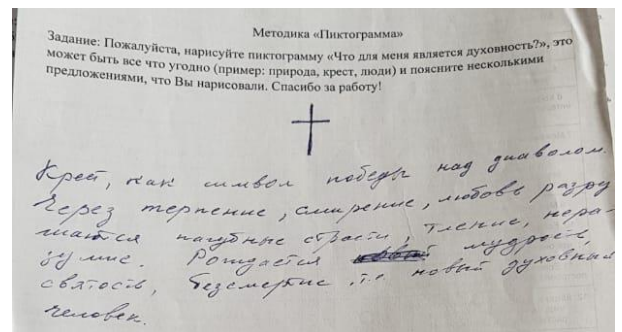 Методика «Пиктограмма»
Задание: Пожалуйста, нарисуйте пиктограмму «Что для меня является духовность?», это
может быть все что угодно (пример: природа, крест, люди) и поясните несколькими
предложениями, что Вы нарисовали. Спасибо за работу!
Крест, как символ победы над диаволом.
Через терпение, смирение, любовь разру
шаются пагубные страсти, тление, нера-
зумие. Рождается мудрость,
святость, безсмертие, т.е. новый духовный
человек.